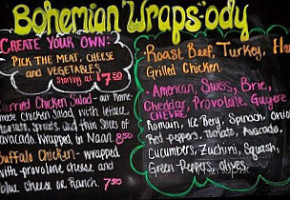 Bohemian Wraps-ody
CREATE YOUR OWN:
PICK THE MEAT, CHEESE
and VEGETABLES
Starting at 7.50
Curried Chicken Salad - our Home
made Chicken Salad with lettuce,
tomato, sprouts, and thin slices of
avocado. Wrapped in Naan 8.50
Buffalo Chicken - wrapped
with provolone cheese and
blue cheese or Ranch 7.50
Roast Beef, Turkey, Ha
Grilled Chicken
- American, Swiss, Brie,
Cheddar, Provolone, Gruyere
CHEVRE
Romain, Ice Berg, Spinach, Onion
Red peppers, Tomato, Avocado,
Cucumbers, Zuchini, Squash,
Green Peppers, olives,